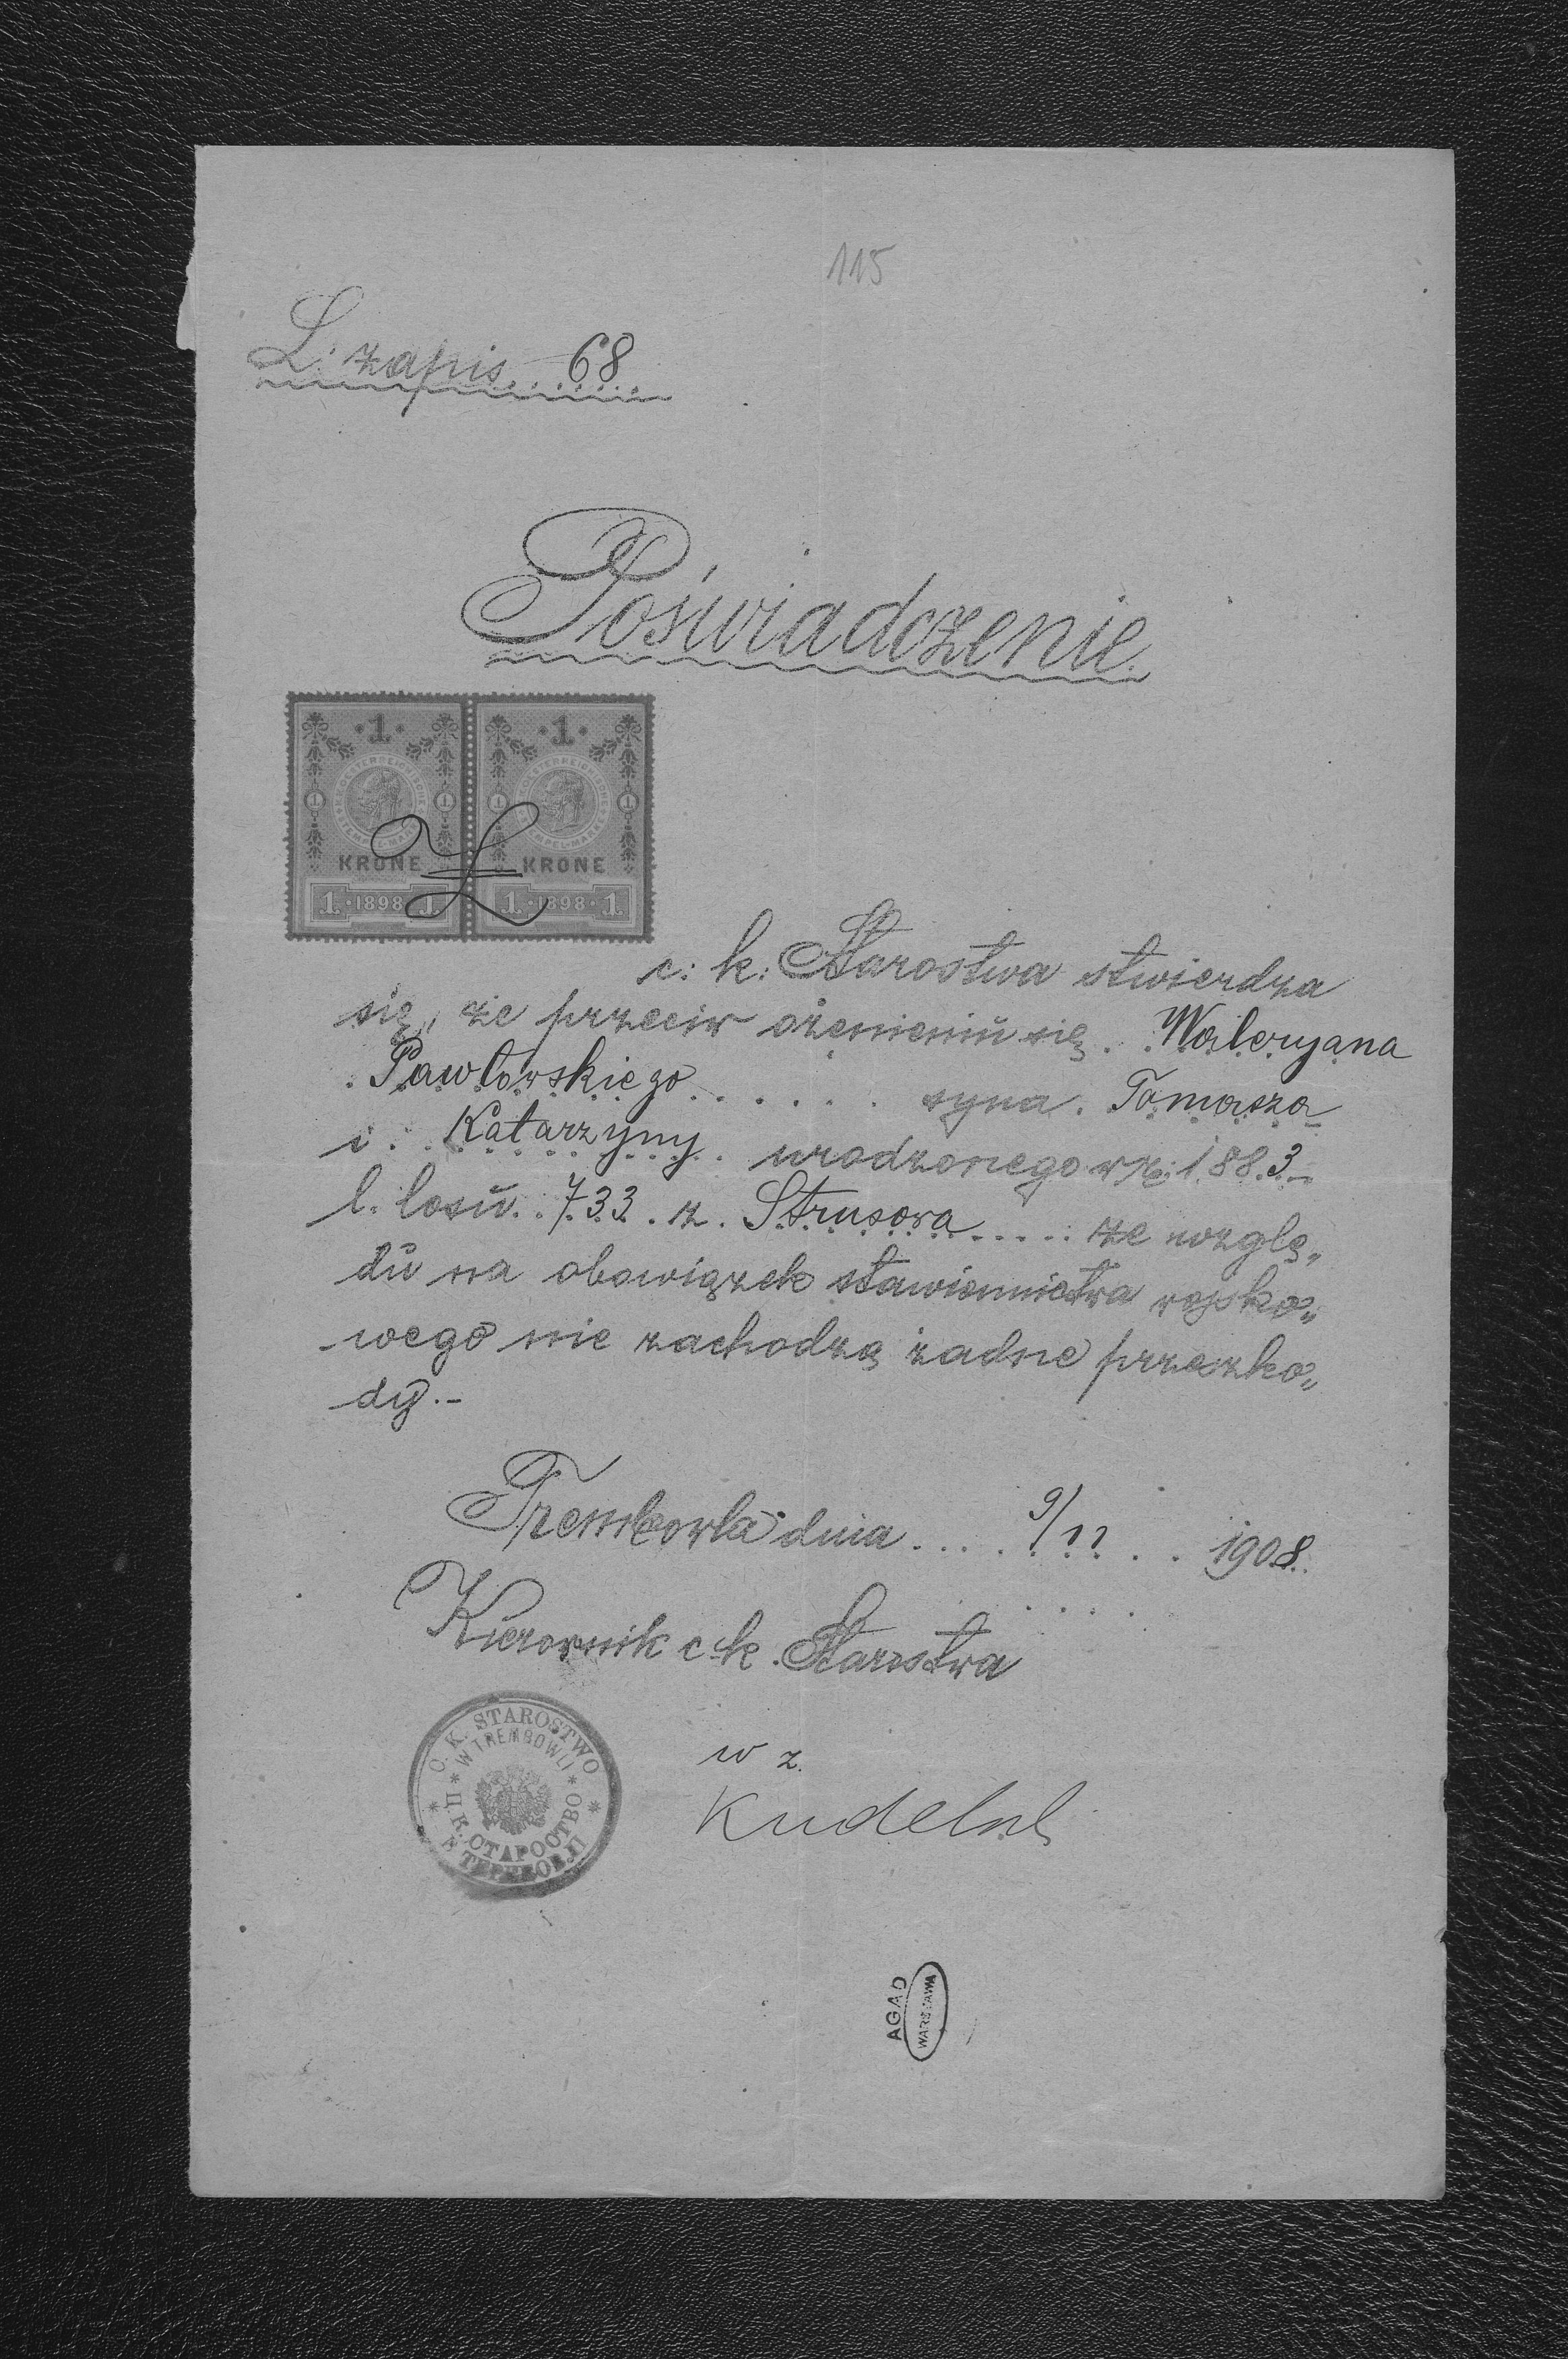 115
L: zapis. 68
Poświadczenie
1 1
K.K. OESTERREICHISCHE STEMPEL-MARKE
KRONE KRONE
1. 1898 1. 1. 1898 1.
c: k: Starostwa stwierdza
się, że przeciw ożenieniu się. Waleryana
Pawłowskiego syna. Tomasza
i. Katarzyny urodzonego w r: 1883
l. losu. 733. z. Strusowa ze wzglę„
du na obowiązek stawiennictwa wojsko„
wego nie zachodzą żadne przeszko„
dy.–
Trembowla dnia 9/11 1908.
Kierownik c k. Starostwa
w z.
C. K. STAROSTWO
W TREMBOWLI
Ц. К. СТАРОСТВО
AGAD
WARSZAWA